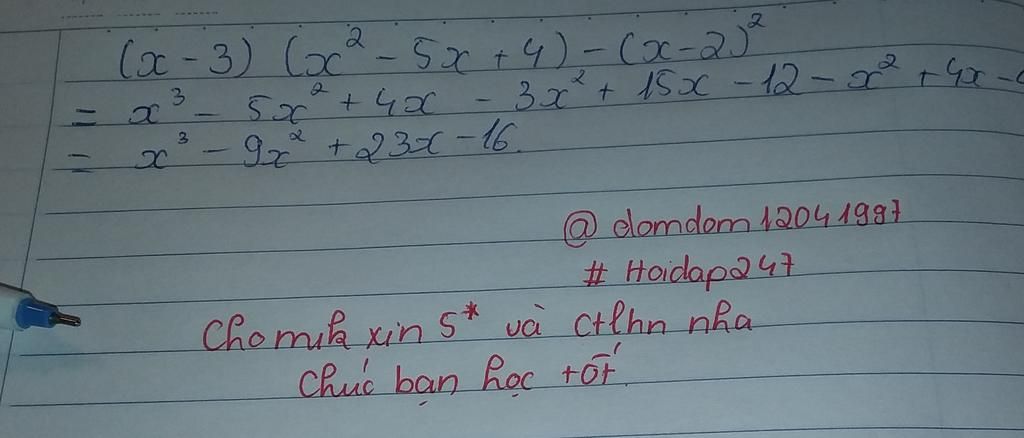 (x - 3) (x² - 5x + 4) - (x - 2)²
= x³ - 5x² + 4x - 3x² + 15x - 12 - x² + 4x -
= x³ - 9x² + 23x - 16.
@ domdom12041987
# Hoidap247
Cho mik xin 5* và ctlhn nha
Chúc bạn học tốt